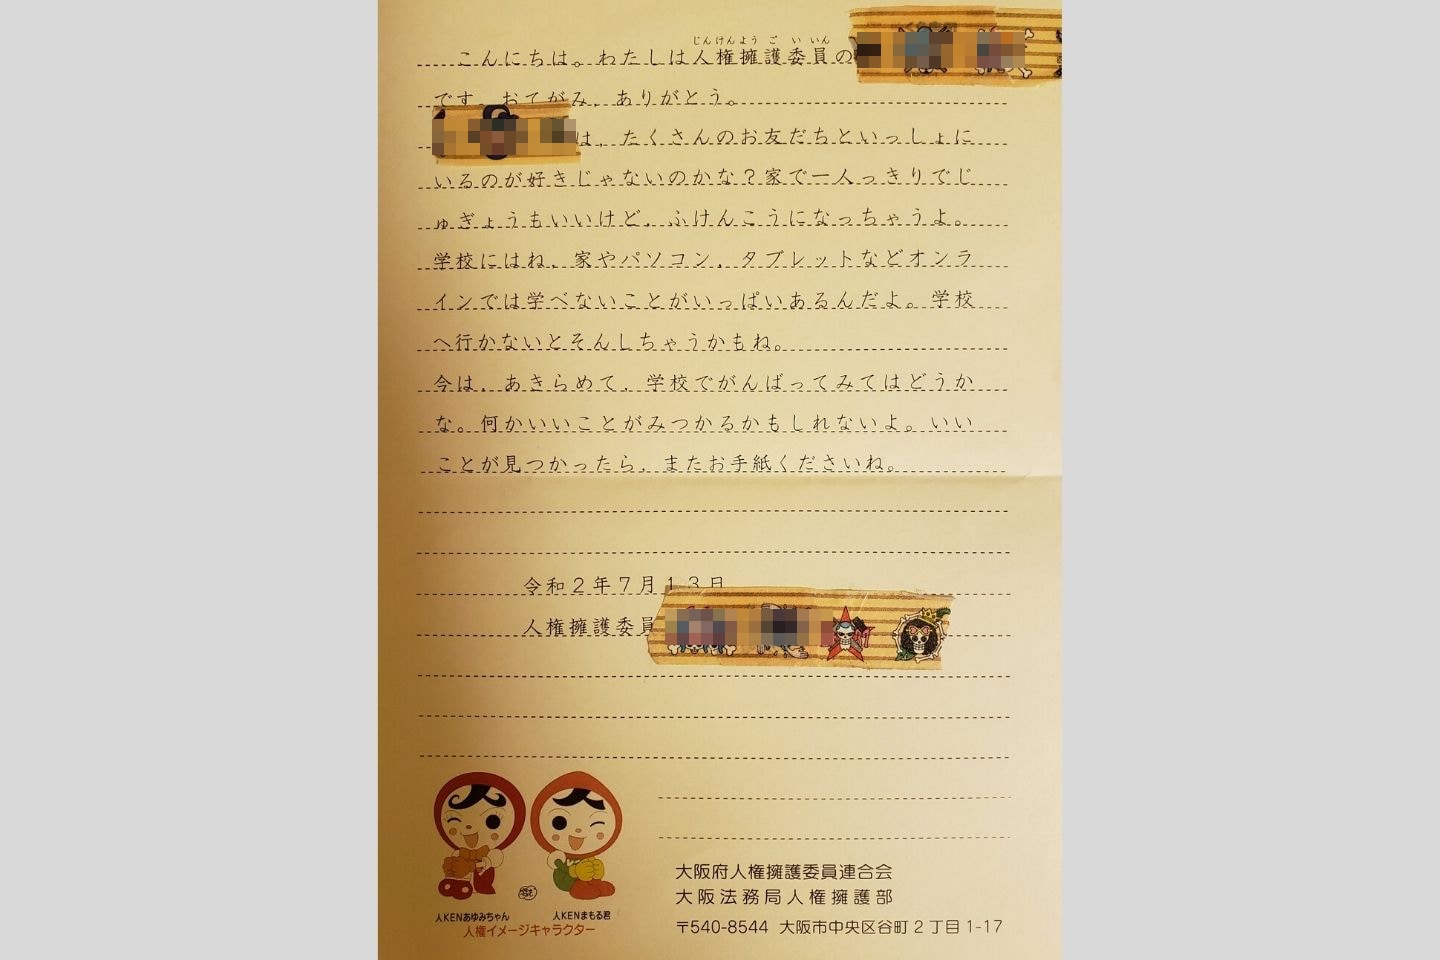 じんけんようごいいん
こんにちは。わたしは人権擁護委員の
です。おてがみ、ありがとう。
は、たくさんのお友だちといっしょに
いるのが好きじゃないのかな？家で一人っきりでじ
ゅぎょうもいいけど、ふけんこうになっちゃうよ。
学校にはね、家やパソコン、タブレットなどオンラ
インでは学べないことがいっぱいあるんだよ。学校
へ行かないとそんしちゃうかもね。
今は、あきらめて、学校でがんばってみてはどうか
な。何かいいことがみつかるかもしれないよ。いい
ことが見つかったら、またお手紙くださいね。
令和２年７月１３日
人権擁護委員
人KENあゆみちゃん 人KENまもる君
人権イメージキャラクター
大阪府人権擁護委員連合会
大阪法務局人権擁護部
〒540-8544 大阪市中央区谷町２丁目1-17